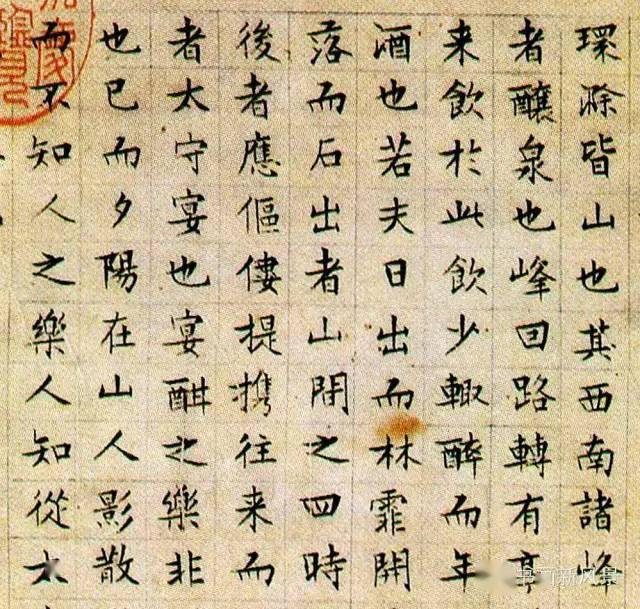 環滁皆山也其西南諸峰
者釀泉也峰回路轉有亭
来飲於此飲少輙醉而年
酒也若夫日出而林霏開
落而石出者山間之四時
後者應傴僂提携往来而
者太守宴也宴酣之樂非
也已而夕陽在山人影散
而不知人之樂人知從太